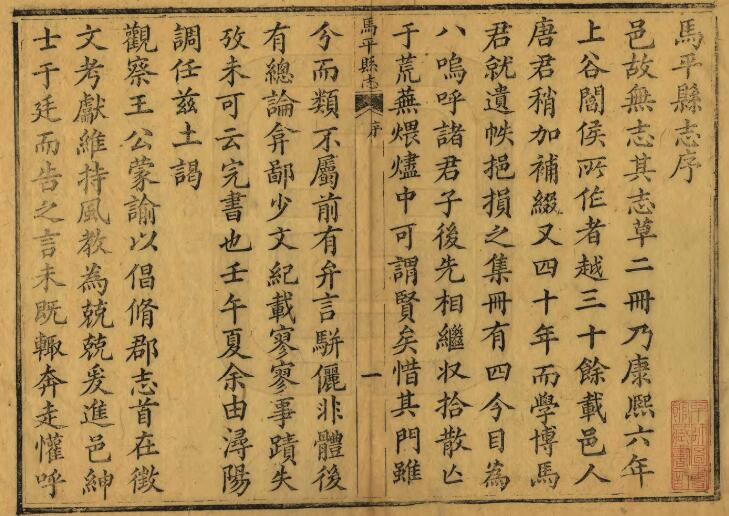 馬平縣志序
邑故無志其志草二冊乃康熙六年
上谷閻侯所作者越三十餘載邑人
唐君稍加補綴又四十年而學博馬
君就遺帙挹損之集冊有四今目為
八嗚呼諸君子後先相繼収拾散亾
于荒蕪煨燼中可謂賢矣惜其門雖
馬平縣志
序
一
分而類不屬前有弁言駢儷非體後
有總論弇鄙少文紀載寥寥事蹟失
攷未可云完書也壬午夏余由潯陽
調任茲土謁
觀察王公蒙諭以倡脩郡志首在徵
文考獻維持風教為兢兢爰進邑紳
士于廷而告之言未既輙奔走懽呼